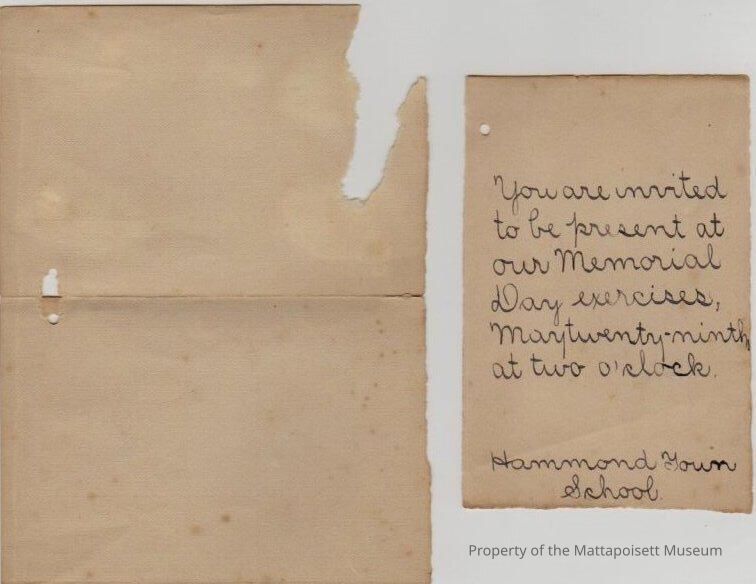 You are invited
to be present at
our Memorial
Day exercises,
May twenty-ninth
at two o'clock.
Hammond Town
School.
Property of the Mattapoisett Museum